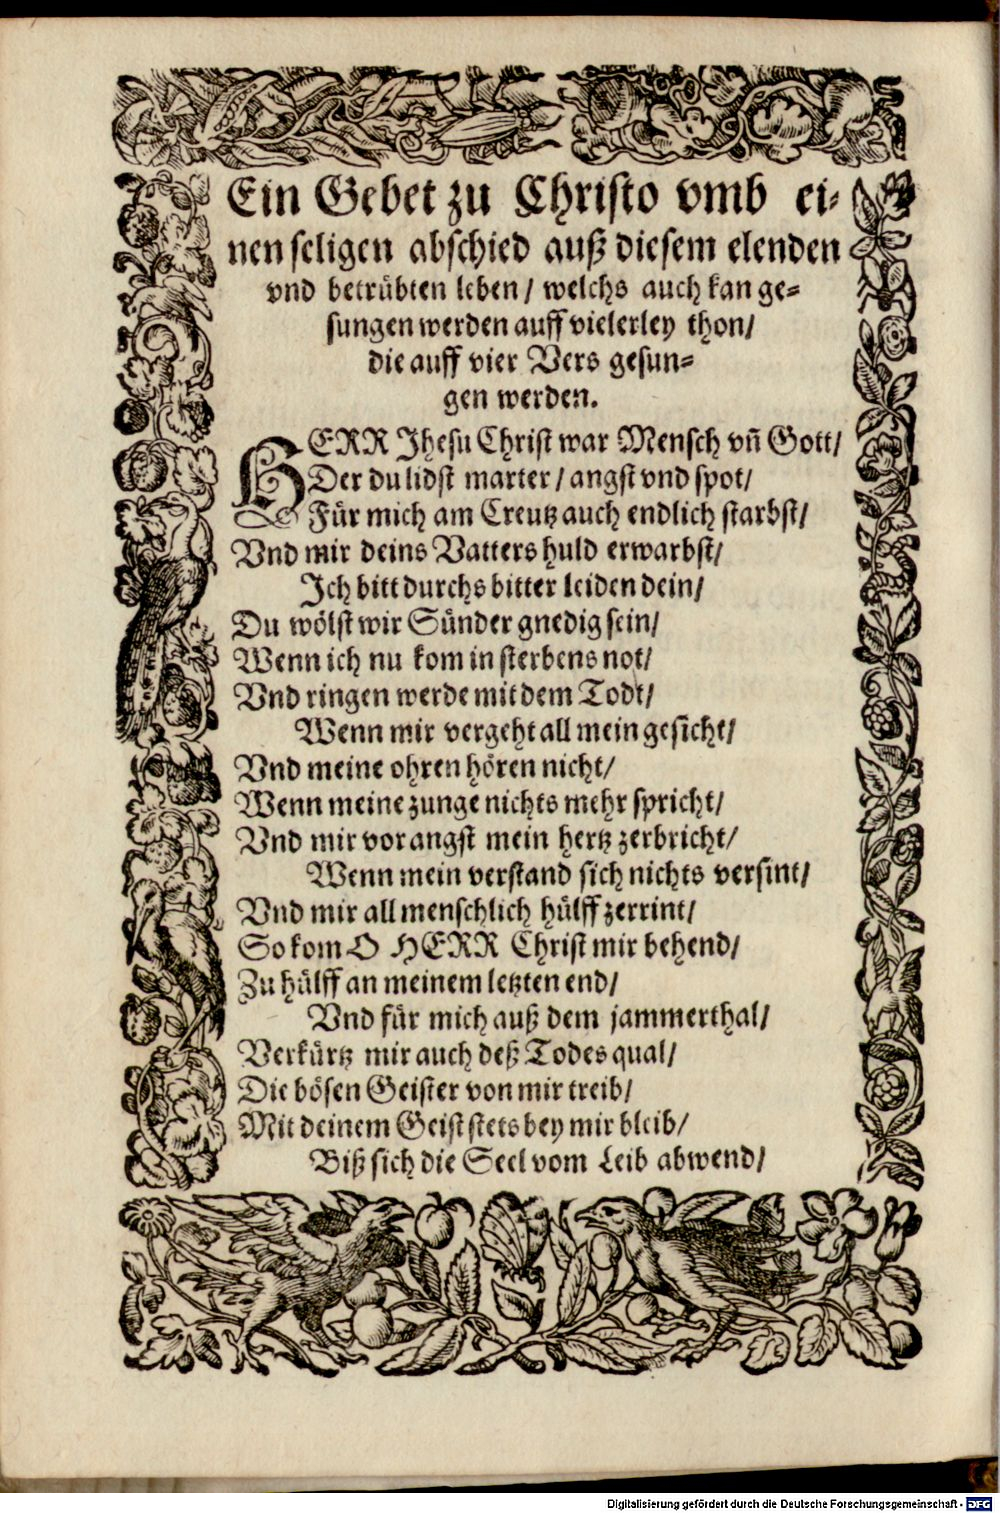 Ein Gebet zu Christo vmb ei-
nen seligen abschied auß diesem elenden
vnd betrübten leben / welchs auch kan ge-
sungen werden auff vielerley thon /
die auff vier Vers gesun-
gen werden.
HERR Jhesu Christ war Mensch vn̄ Gott /
Der du lidst marter / angst vnd spot /
Für mich am Creutz auch endlich starbst /
Vnd mir deins Vatters huld erwarbst /
Ich bitt durchs bitter leiden dein /
Du wölst wir Sünder gnedig sein /
Wenn ich nu kom in sterbens not /
Vnd ringen werde mit dem Todt /
Wenn mir vergeht all mein gesicht /
Vnd meine ohren hören nicht /
Wenn meine zunge nichts mehr spricht /
Vnd mir vor angst mein hertz zerbricht /
Wenn mein verstand sich nichts versint /
Vnd mir all menschlich hülff zerrint /
So kom O HERR Christ mir behend /
Zu hülff an meinem letzten end /
Vnd für mich auß dem jammerthal /
Verkürtz mir auch deß Todes qual /
Die bösen Geister von mir treib /
Mit deinem Geist stets bey mir bleib /
Biß sich die Seel vom Leib abwend /
Digitalisierung gefördert durch die Deutsche Forschungsgemeinschaft - DFG